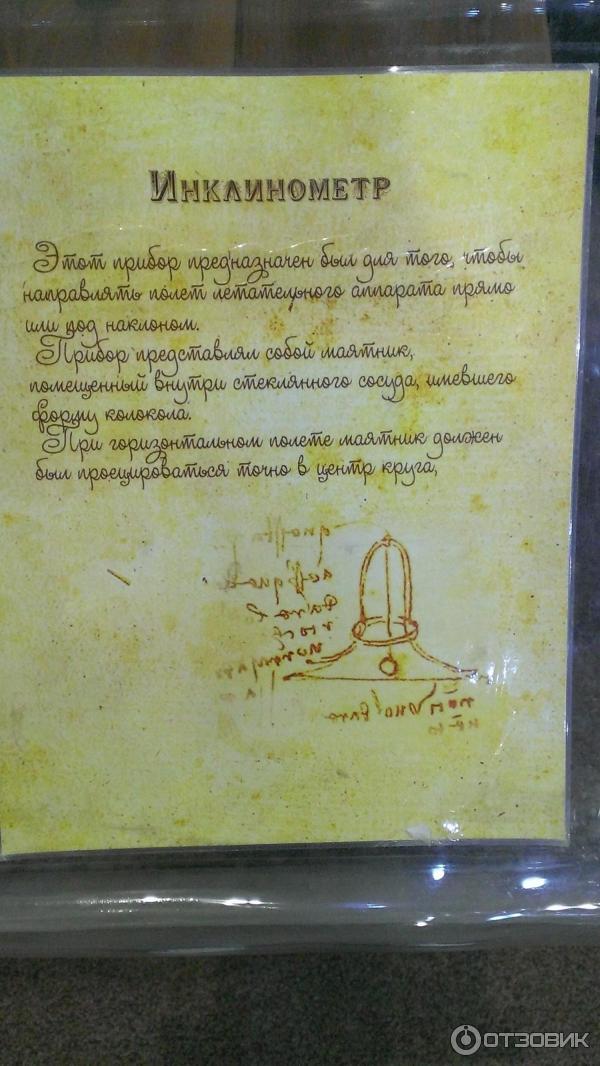 Инклинометр
Этот прибор предназначен был для того, чтобы
направлять полет летательного аппарата прямо
или под наклоном.
Прибор представлял собой маятник,
помещенный внутри стеклянного сосуда, имевшего
форму колокола.
При горизонтальном полете маятник должен
был проецироваться точно в центр круга,
ОТЗОВИК